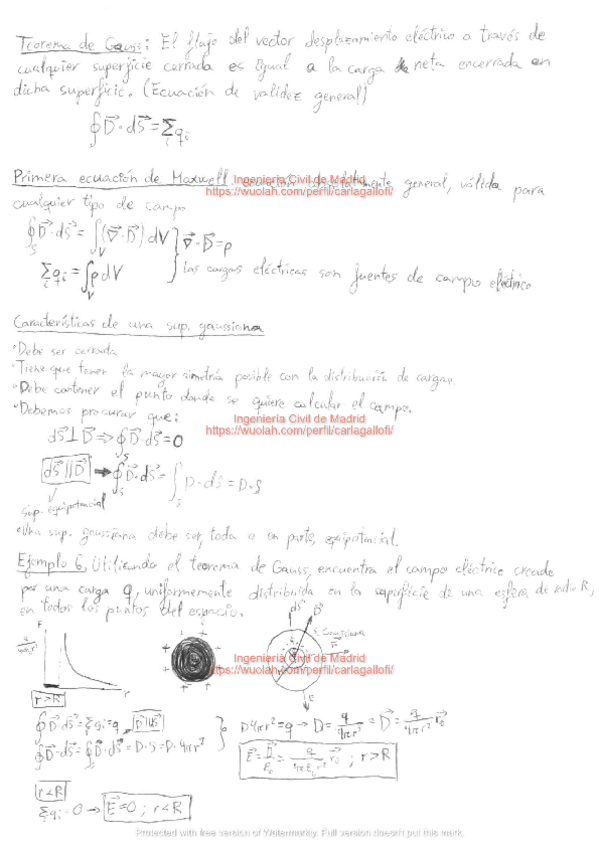 Teorema de Gauss: El flujo del vector desplazamiento eléctrico a través de
cualquier superficie cerrada es igual a la carga neta encerrada en
dicha superficie. (Ecuación de validez general)
∮D⃗·dS⃗=Σqᵢ
Primera ecuación de Maxwell ecuación absolutamente general, válida para
Ingeniería Civil de Madrid
https://wuolah.com/perfil/carlagallofi/
cualquier tipo de campo
∮_S D⃗·dS⃗=∫_V(∇⃗·D⃗)dV } ∇⃗·D⃗=ρ
Σqᵢ=∫_V ρdV
las cargas eléctricas son fuentes de campo eléctrico
Características de una sup. gaussiana
•Debe ser cerrada
•Tiene que tener la mayor simetría posible con la distribución de cargas.
•Debe contener el punto donde se quiere calcular el campo.
•Debemos procurar que:
Ingeniería Civil de Madrid
https://wuolah.com/perfil/carlagallofi/
dS⃗⊥D⃗⇒∮_S D⃗·dS⃗=0
dS⃗||D⃗ → ∮_S D⃗·dS⃗=∫_S D·dS=D·S
Sup. equipotencial
•Una sup. gaussiana debe ser, toda o en parte, equipotencial.
Ejemplo 6. Utilizando el teorema de Gauss, encuentra el campo eléctrico creado
por una carga q, uniformemente distribuida en la superficie de una esfera de radio R,
en todos los puntos del espacio.
E
r
dS⃗ D⃗
S. Gaussiana
Ingeniería Civil de Madrid
https://wuolah.com/perfil/carlagallofi/
E
r>R
∮D⃗·dS⃗=Σqᵢ=q, D⃗||dS⃗
∮D⃗·dS⃗=∮D⃗·dS⃗=D·S=D·4πr²
D4πr²=q → D=q/4πr² = D⃗=q/4πr² r⃗₀
E⃗=D⃗/ε₀=q/4πε₀r² r⃗₀ ; r>R
r<R
Σqᵢ=0 → E⃗=0 ; r<R
Protected with free version of Watermarkly. Full version doesn't put this mark.